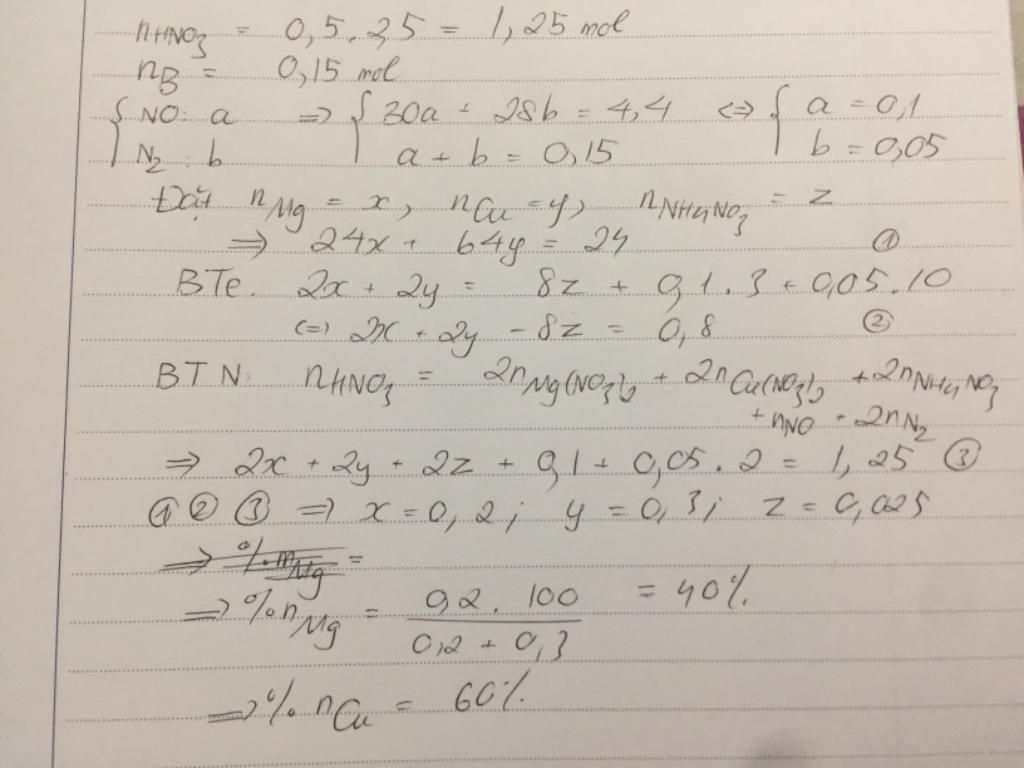 nHNO3 = 0,5.2,5 = 1,25 mol
nB = 0,15 mol
{ NO: a => { 30a + 28b = 4,4 <=> { a = 0,1
N2: b a + b = 0,15 b = 0,05
Đặt nMg = x, nCu = y, nNH4NO3 = z
=> 24x + 64y = 24 ①
BTe. 2x + 2y = 8z + 0,1.3 + 0,05.10
<=> 2x + 2y - 8z = 0,8 ②
BTN: nHNO3 = 2nMg(NO3)2 + 2nCu(NO3)2 + 2nNH4NO3
+ nNO + 2nN2
=> 2x + 2y + 2z + 0,1 + 0,05.2 = 1,25 ③
① ② ③ => x = 0,2; y = 0,3; z = 0,025
=> %mMg =
=> %nMg = 0,2.100 / 0,2 + 0,3 = 40%
=> %nCu = 60%